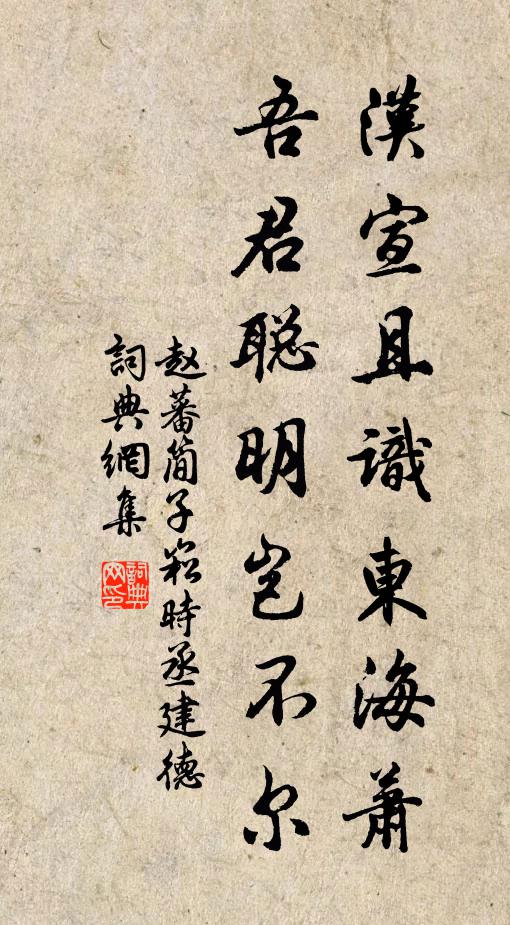 漢宣且識東海蕭
吾君聪明岂不尔
赵蕃简子崧時丞建德
詞典網集
詞典网印